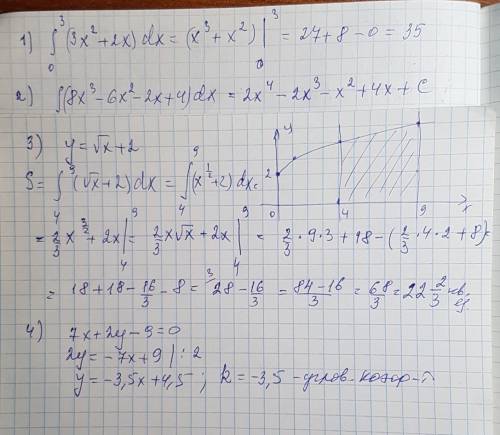 1) ∫₀³ (3x² + 2x) dx = (x³ + x²) |₀³ = 27 + 8 - 0 = 35
2) ∫(8x³ - 6x² - 2x + 4) dx = 2x⁴ - 2x³ - x² + 4x + C
3) y = √x + 2
S = ∫₄⁹ (√x + 2) dx = ∫₄⁹ (x^(1/2) + 2) dx =
y
2
0
4
9
x
= 2/3 x^(3/2) + 2x |₄⁹ = 2/3 x√x + 2x |₄⁹ = 2/3 · 9 · 3 + 18 - (2/3 · 4 · 2 + 8) =
= 18 + 18 - 16/3 - 8 = 28 - 16/3 = (84 - 16)/3 = 68/3 = 22 2/3 кв. ед
4) 7x + 2y - 9 = 0
2y = -7x + 9 | : 2
y = -3,5x + 4,5 ; k = -3,5 - углов. коэф-т